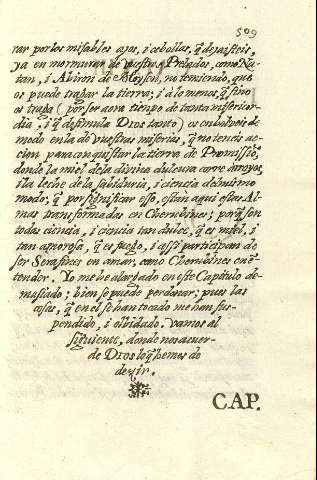 509
rar por los misables ajos, i cebollas, q̃ dejasteis,
ya en mormurar de vuestros Prelados, como Na-
tan, i Abiron de Moysen, no temiendo, que
os puede tragar la tierra; i a lo menos, q̃ si no
os traga (por ser aora tienpo de tanta misericor-
dia, i q̃ desimula DIOS tanto) os enbolveis de
modo en la de vuestras miserias, q̃ no teneis ac-
cion para conquistar la tierra de Promissiõ,
donde la miel de la divina dulçura corre arroyos,
i la leche de la sabiduria, i ciencia del mismo
modo; q̃ por significar esso, estan aqui estas Al-
mas transformadas en Cherubines; porq̃ son
todas ciencia, i ciencia tan dulce, q̃ es miel, i
tan amorosa, q̃ es fuego, i assi participan de
ser Serafines en amar, como Cherubines en ẽ-
tender. Yo me he alargado en este Capitulo de-
masiado; bien se puede perdonar; pues las
cosas, q̃ en el se han tocado me han sus-
pendido, i olvidado. vamos al
siguiente, donde nos acuer-
de DIOS lo q̃ hemos de
dezir.
CAP.